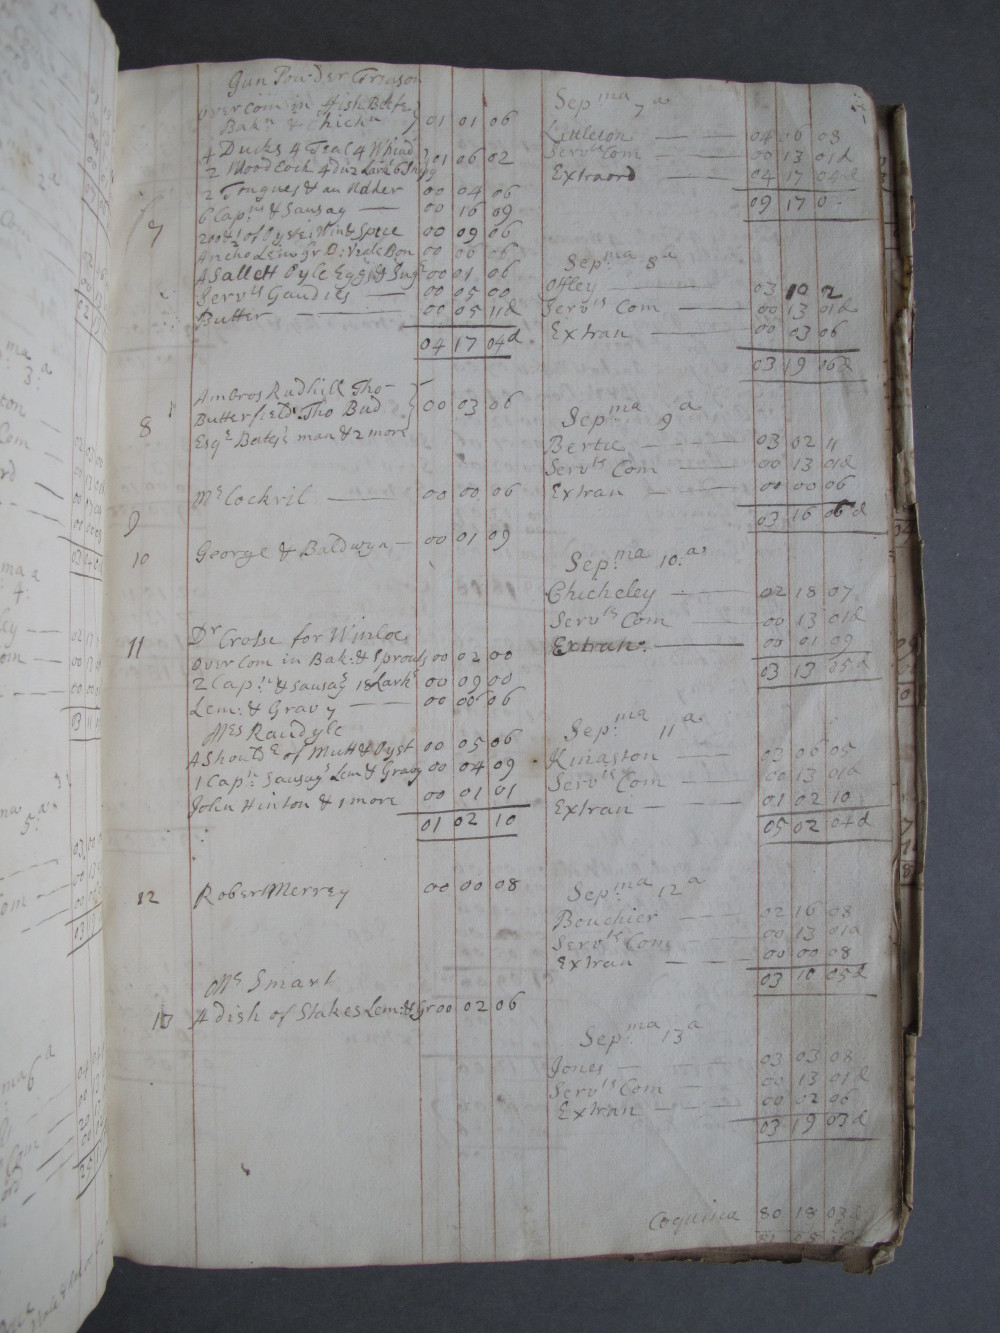 Gun Powder Treason
over Com in Fish Beefe
Bak:n & Chick:n } 01 01 06
4 Ducks 4 Teal 4
2 Wood Cock 4 6 } 01 06 02
2 Tongues & an Udder 00 04 06
7
6 Cap:ns & Sausag — 00 16 09
of Oyste: Win & Spice 00 09 06
Ancho Lem Gr 00 06 06
A Sallett Oyle Eggs & 00 01 06
Serv:ts Gaudies — 00 05 00
Butter — 00 05 11d
04 17 04d
8
Ambros Rudhill Tho
Butterfield Tho Bud } 00 03 06
Esq:r man & 2 more
9
Mr Cockril — 00 00 06
10
George & Baldwyn — 00 01 09
11
Dr Crosse for
over Com in Bak: & Sprouts 00 02 00
2 Cap:ns & Sausag:s 18 Larks 00 09 00
Lem: & Gravy — 00 00 06
Mrs Randyle
A Should:r of Mutt & Oyst 00 05 06
1 Cap:n Sausag:s Lem & Gravy 00 04 09
John Hinton & 1 more 00 01 01
01 02 10
12
Robert Merrey 00 00 08
Mr Smart
13
A dish of Stakes Lem: & Gr 00 02 06
Sep:ma 7a
Littleton — 04 06 03
Servts Com — 00 13 01d
Extraord — 04 17 04d
09 17 0
Sep:ma 8a
Offley — 03 10 2
Servts Com — 00 13 01d
Extran — 00 03 06
03 19 06d
Sep:ma 9a
Bertie — 03 02 11
Servts Com — 00 13 01d
Extran — 00 00 06
03 16 06d
Sep:ma 10:a
Chicheley — 02 18 07
Servts Com — 00 13 01d
Extran: — 00 01 09
03 13 05d
Sep:ma 11a
Kingston — 03 06 05
Servts Com — 00 13 01d
Extran — 01 02 10
05 02 04d
Sep:ma 12a
Bouchier — 02 16 08
Servts Com — 00 13 01d
Extran — 00 00 08
03 10 05d
Sep:ma 13a
Jones — 03 03 08
Servts Com — 00 13 01d
Extran — 00 02 06
03 19 03d
Coquina 80 18 03